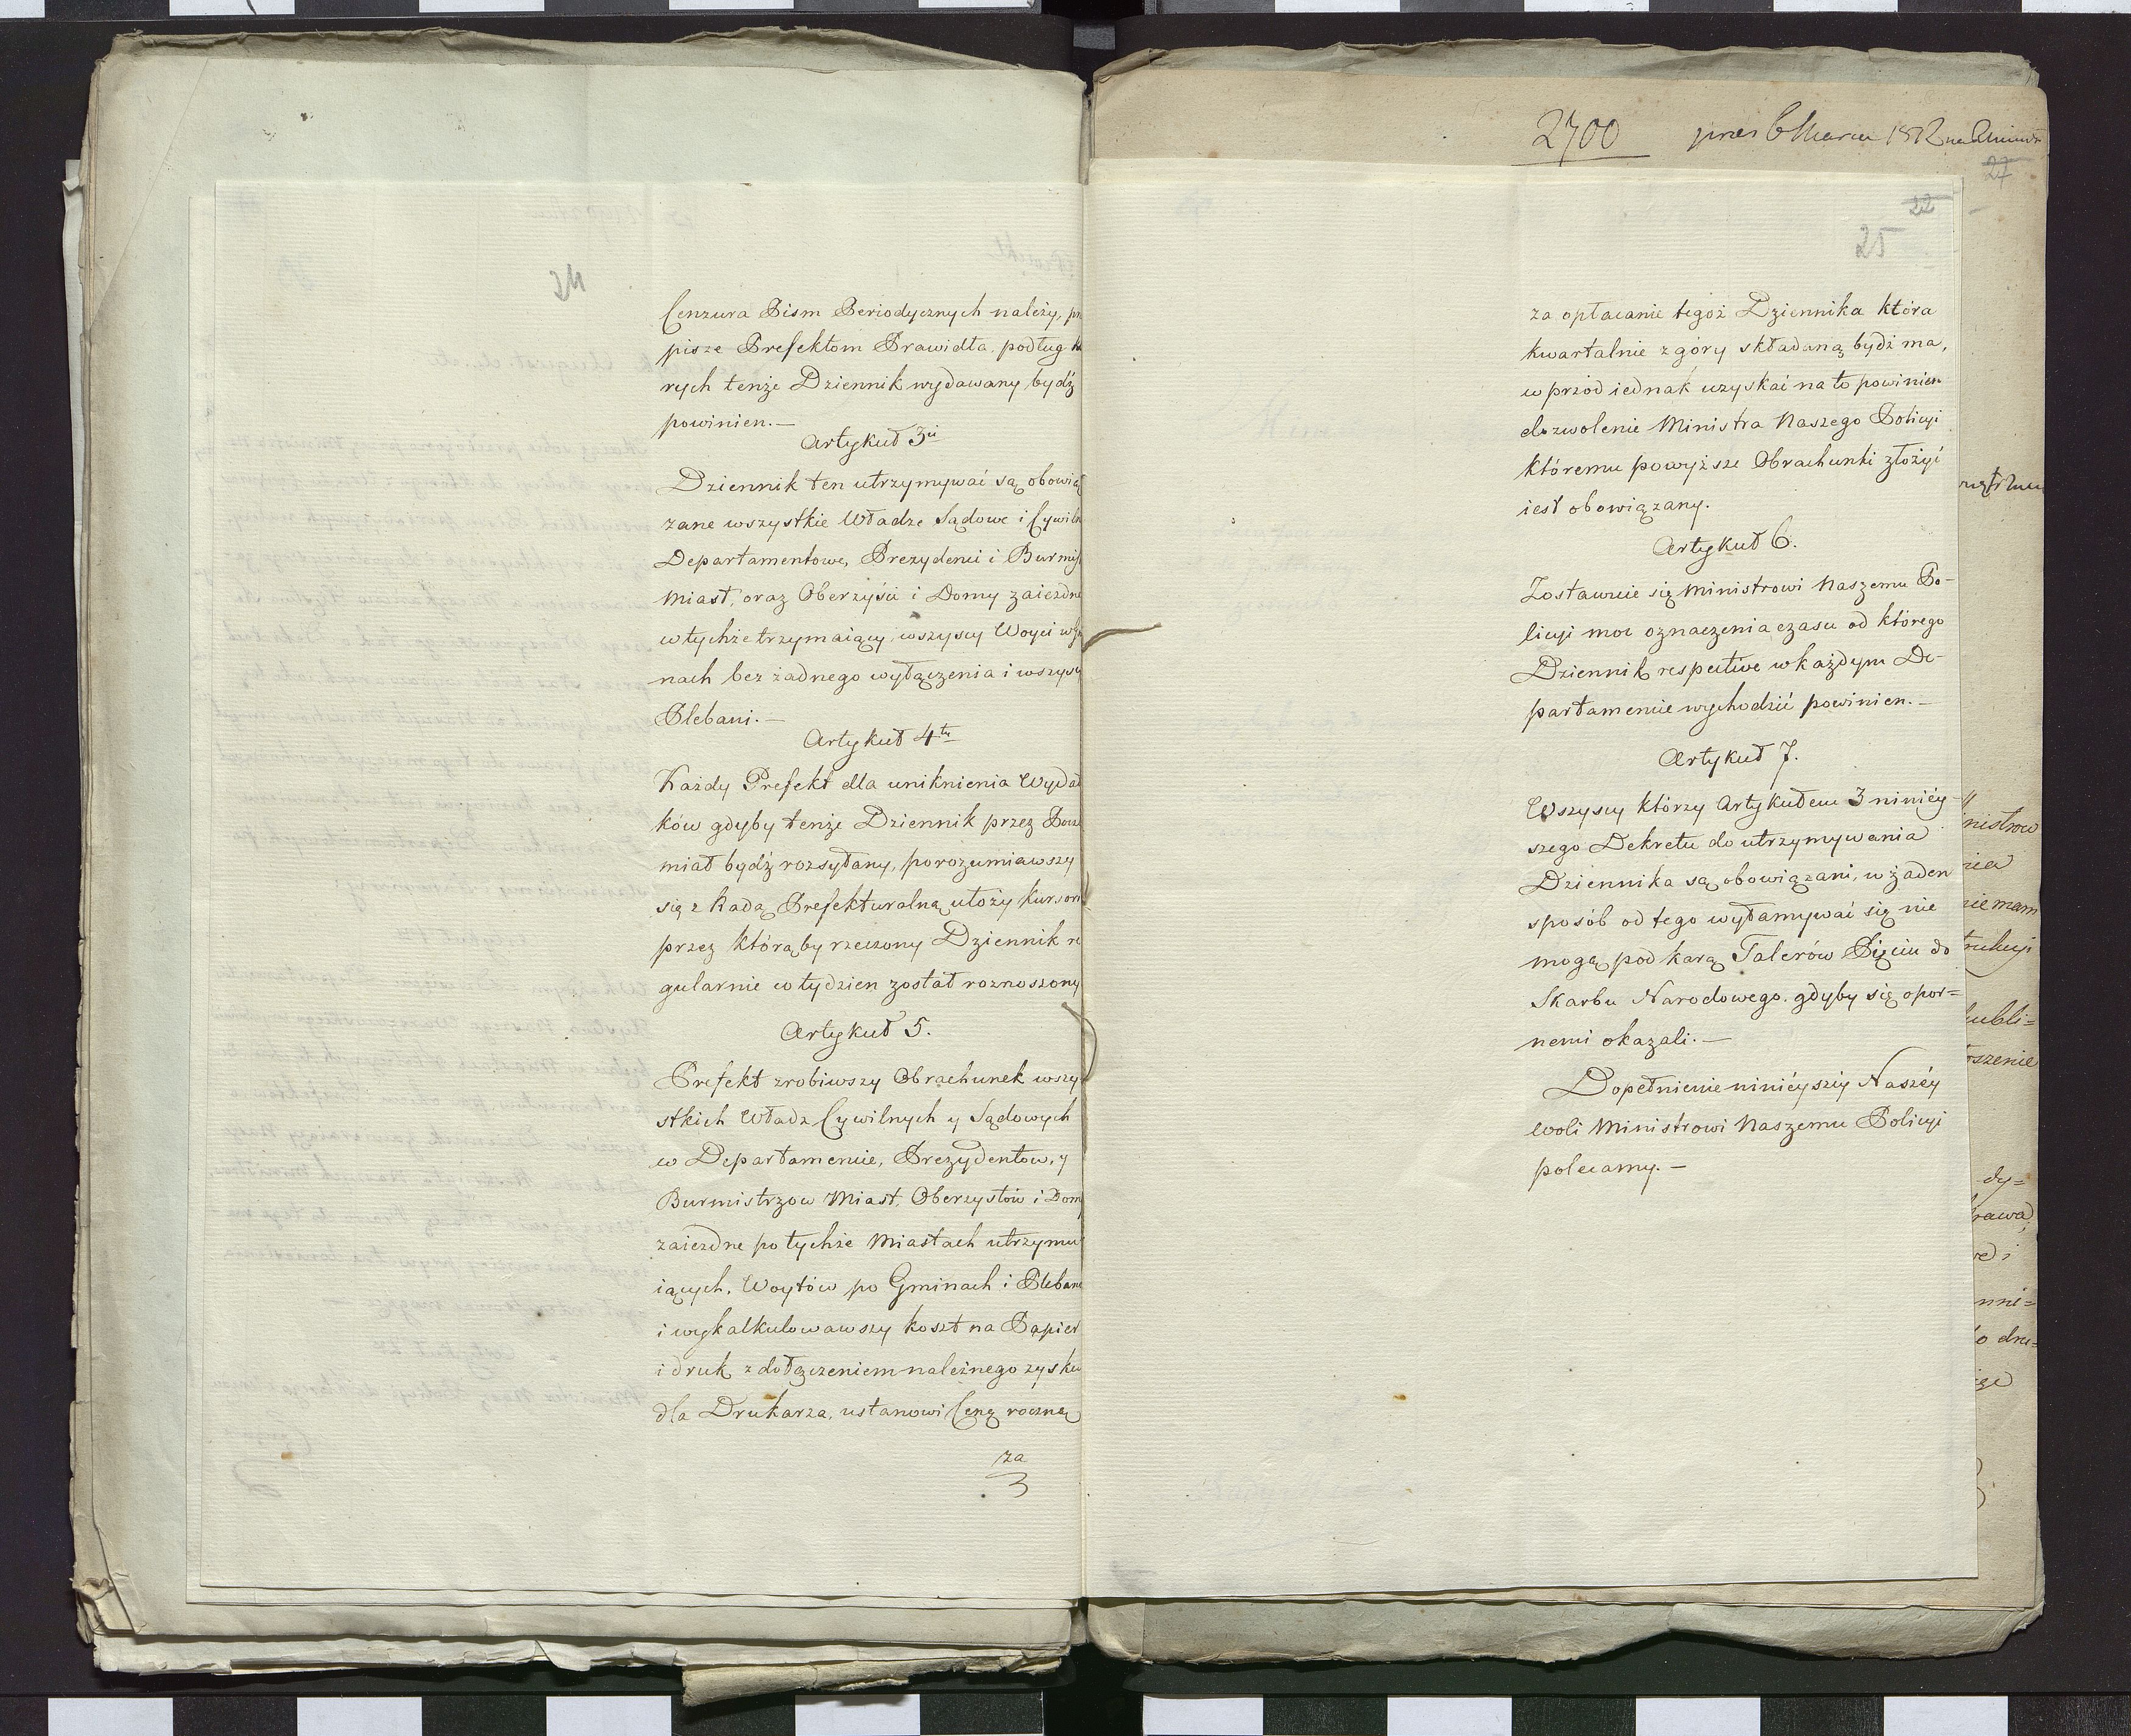 24
Cenzura Pism Periodycznych należy,
pisze Prefektom Prawidła, podług
rych tenże Dziennik wydawany bydź
powinien.—
Artykuł 3ci
Dziennik ten utrzymywać są obowią
zane wszystkie Władze Sądowe i Cywiln
Departamentowe, Prezydenci i Burmis
Miast, oraz Oberzyści i Domy zaiezdne
w tychże trzymaiący, wszyscy Woyci w
nach bez żadnego wyłączenia i wszyscy
Plebani.—
Artykuł 4ty
Każdy Prefekt dla uniknienia Wydat
ków gdyby tenże Dziennik przez Pocz
miał bydź rozsyłany, porozumiawszy
się z Radą Prefekturalną ułoży Kurson
przez którąby rzeczony Dziennik re
gularnie w tydzien został roznoszony
Artykuł 5.
Prefekt zrobiwszy Obrachunek wszy
stkich Władz Cywilnych y Sądowych
w Departamencie, Prezydentow, y
Burmistrzow Miast, Oberzystów i Domy
zaiezdne po tychże Miastach utrzymu
iących, Woytów po Gminach i Pleban
i wykalkulowawszy koszt na Papier
i druk z dołączeniem należnego zysku
dla Drukarza, ustanowi Cenę roczną
za
2700 1812
27
22
25
za opłacanie tegoż Dziennika która
kwartalnie z góry składaną bydź ma,
w przód iednak uzyskać na to powinien
dozwolenie Ministra Naszego Policyi
któremu powyższe Obrachunki złożyć
iest obowiązany.
Artykuł 6.
Zostawuie się Ministrowi Naszemu Po-
licyi moc oznaczenia czasu od którego
Dziennik respective w każdym De-
partamencie wychodzić powinien.—
Artykuł 7.
Wszyscy którzy Artykułem 3 ninićy-
szego Dekretu do utrzymywania
Dziennika są obowiązani, w żaden
sposób od tego wyłamywać się nie
mogą pod karą Talerów Pięciu do
Skarbu Narodowego. gdyby się opor=
nemi okazali.—
Dopełnienie ninićyszey Naszéy
woli Ministrowi Naszemu Policyi
polecamy.—
nistrow
nia
nie mam
trukcyi
ubli=
oszenie
dy=
rawa,
nni=
o dru=